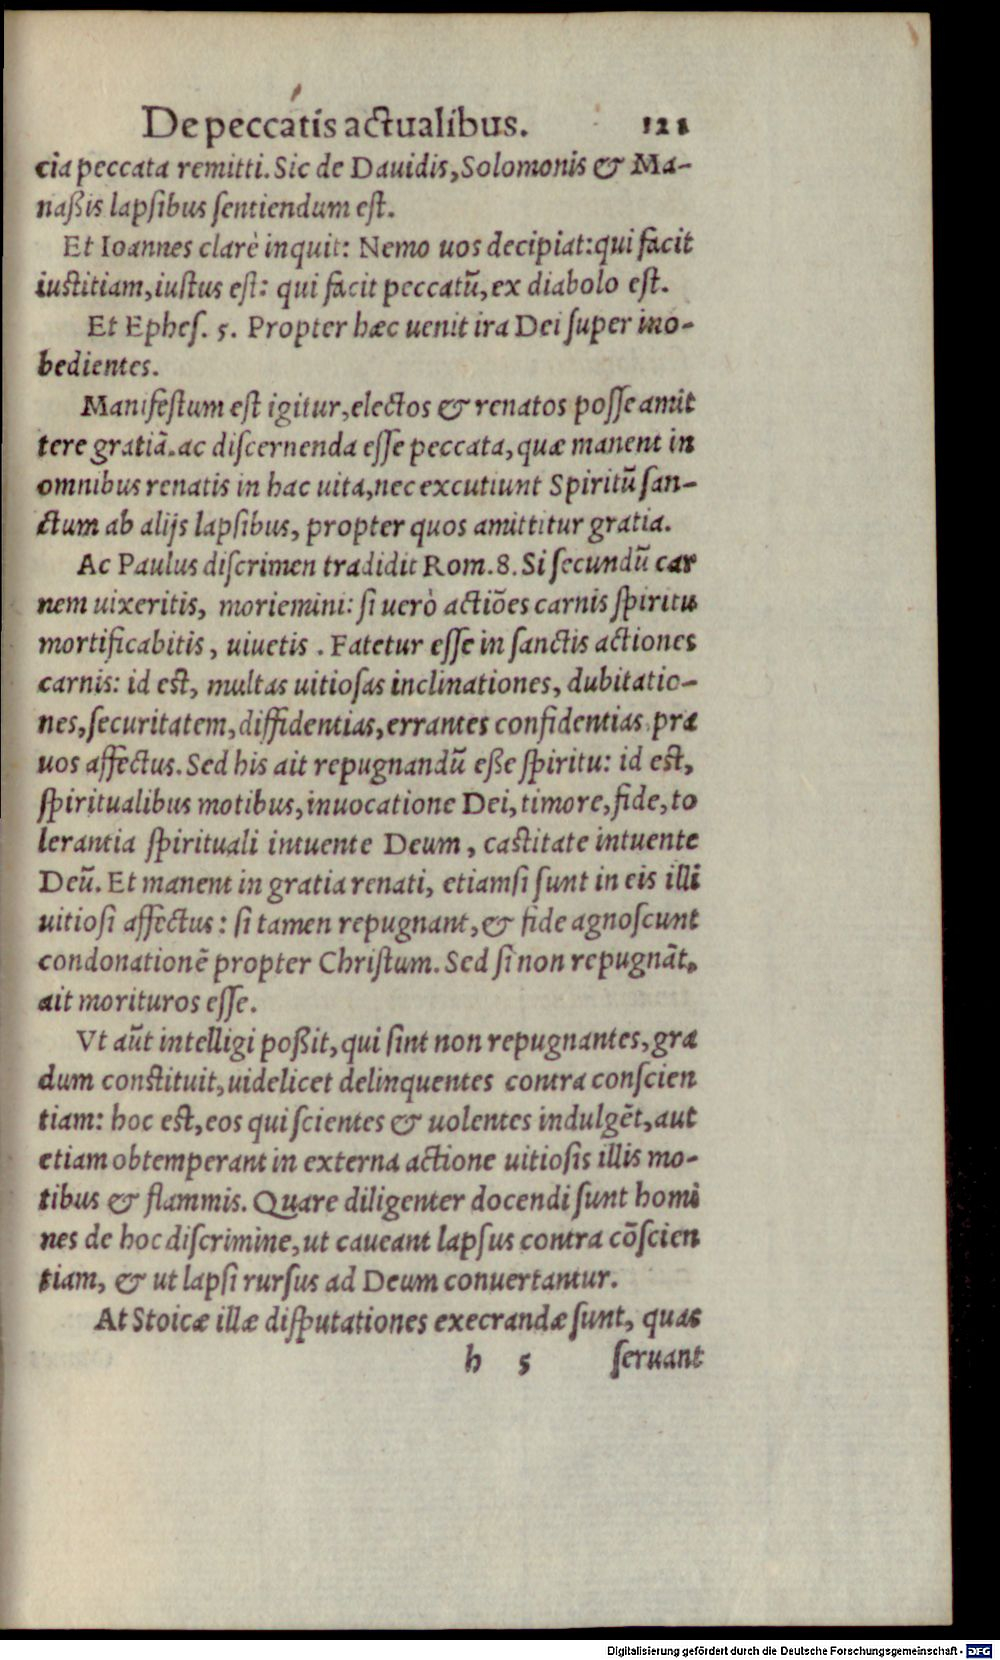 De peccatis actualibus. 121
cia peccata remitti. Sic de Dauidis, Solomonis & Ma-
naßis lapſibus ſentiendum eſt.
Et Ioannes clarè inquit: Nemo uos decipiat: qui facit
iuſtitiam, iuſtus eſt: qui facit peccatū, ex diabolo eſt.
Et Epheſ. 5. Propter hæc uenit ira Dei ſuper ino-
bedientes.
Manifeſtum eſt igitur, electos & renatos poſſe amit
tere gratiā. ac diſcernenda eſſe peccata, quæ manent in
omnibus renatis in hac uita, nec excutiunt Spiritū ſan-
ctum ab alijs lapſibus, propter quos amittitur gratia.
Ac Paulus diſcrimen tradidit Rom. 8. Si ſecundū car
nem uixeritis, moriemini: ſi uerò actiōes carnis ſpiritu
mortificabitis, uiuetis. Fatetur eſſe in ſanctis actiones
carnis: id eſt, multas uitioſas inclinationes, dubitatio-
nes, ſecuritatem, diffidentias, errantes confidentias pra
uos affectus. Sed his ait repugnandū eße ſpiritu: id eſt,
ſpiritualibus motibus, inuocatione Dei, timore, fide, to
lerantia ſpirituali intuente Deum, caſtitate intuente
Deū. Et manent in gratia renati, etiamſi ſunt in eis illi
uitioſi affectus: ſi tamen repugnant, & fide agnoſcunt
condonationē propter Chriſtum. Sed ſi non repugnāt,
ait morituros eſſe.
Vt aūt intelligi poßit, qui ſint non repugnantes, gra
dum conſtituit, uidelicet delinquentes contra conſcien
tiam: hoc eſt, eos qui ſcientes & uolentes indulgēt, aut
etiam obtemperant in externa actione uitioſis illis mo-
tibus & flammis. Quare diligenter docendi ſunt homi
nes de hoc diſcrimine, ut caueant lapſus contra cōſcien
tiam, & ut lapſi rurſus ad Deum conuertantur.
At Stoicæ illæ diſputationes execrandæ ſunt, quas
h 5 ſeruant
Digitalisierung gefördert durch die Deutsche Forschungsgemeinschaft - DFG